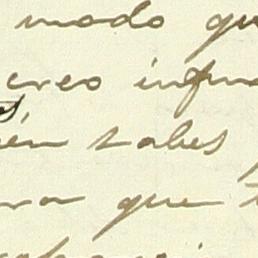 modo qu
creo infun
ién sabes
ra que t